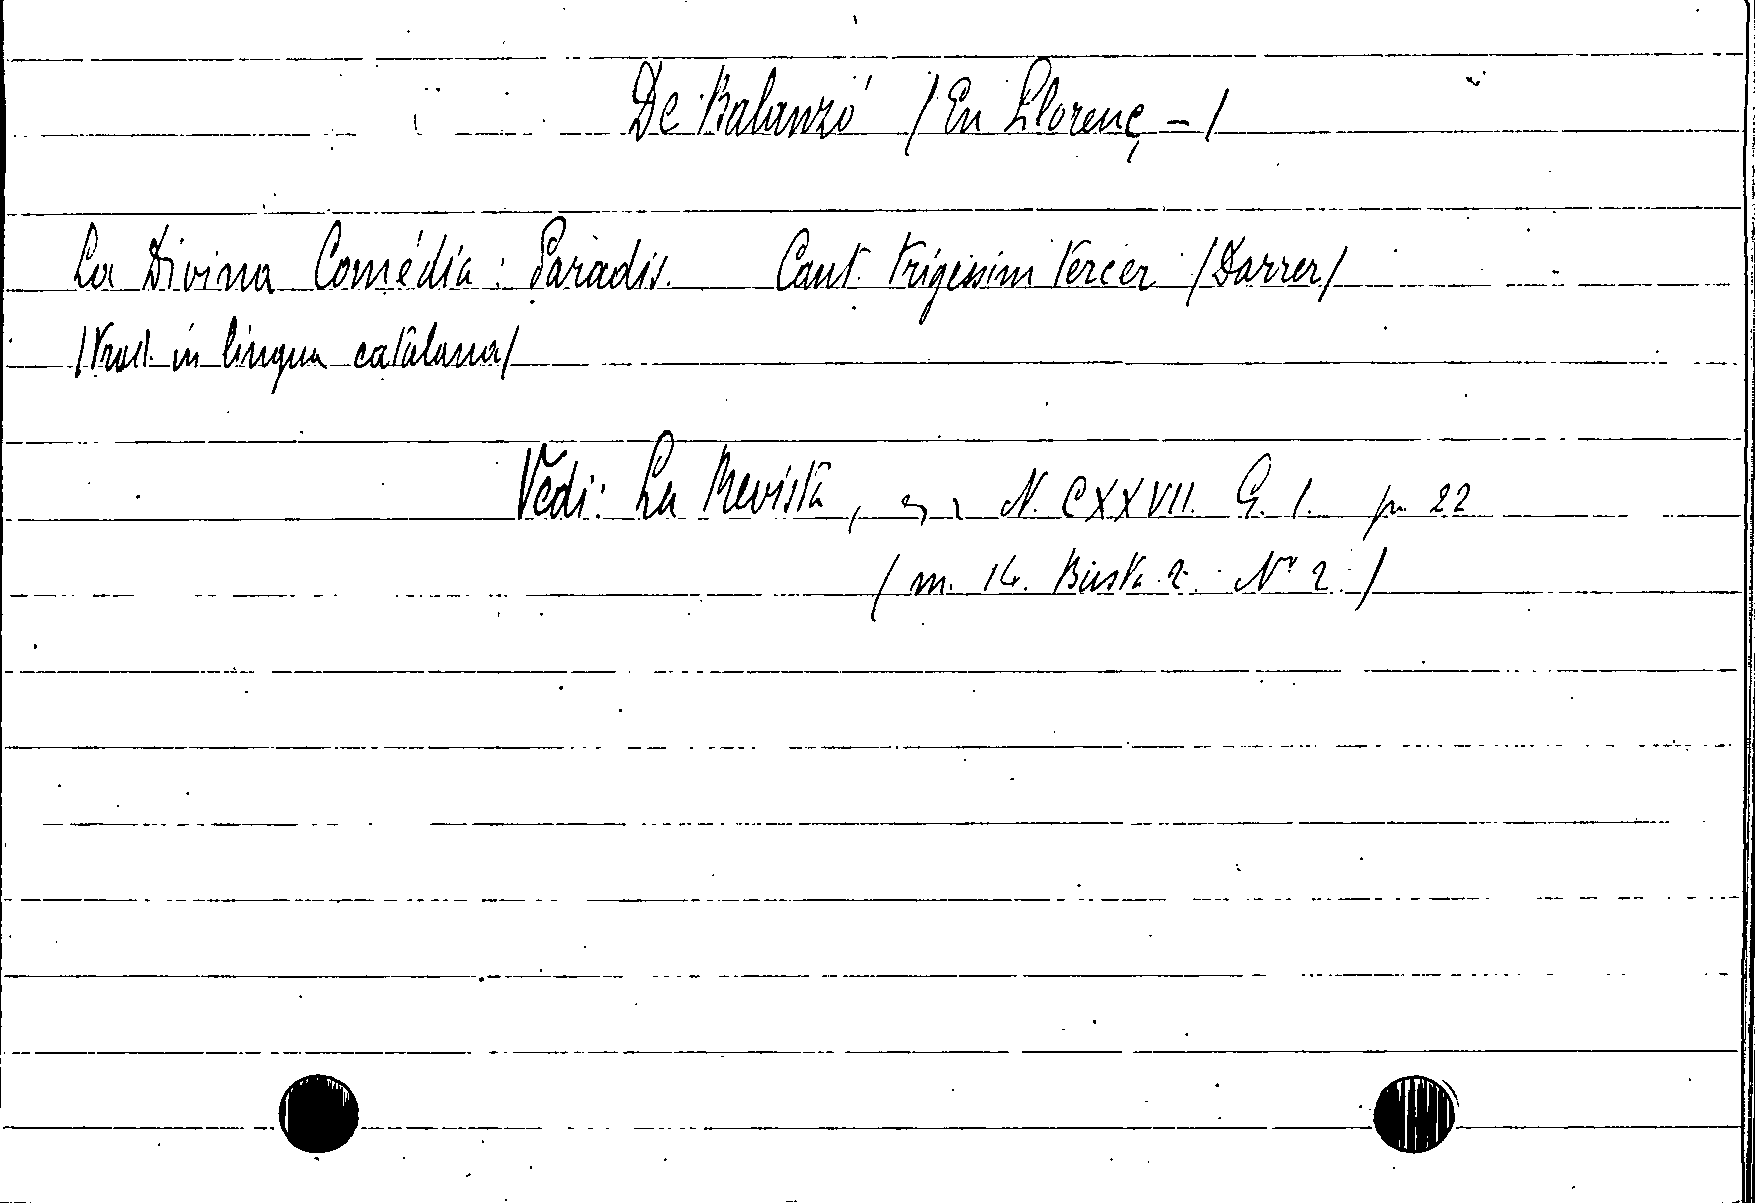 De Balanzó / En Llorenç - /
La Divina Comédia: Paradis. Cant. trigessim tercer / Darrer /
/ trad. in lingua catalana /
Vedi: La Revista, N. CXXVII. G. 1. p. 22
/ m. 14. Busta 2. Nº 2. /